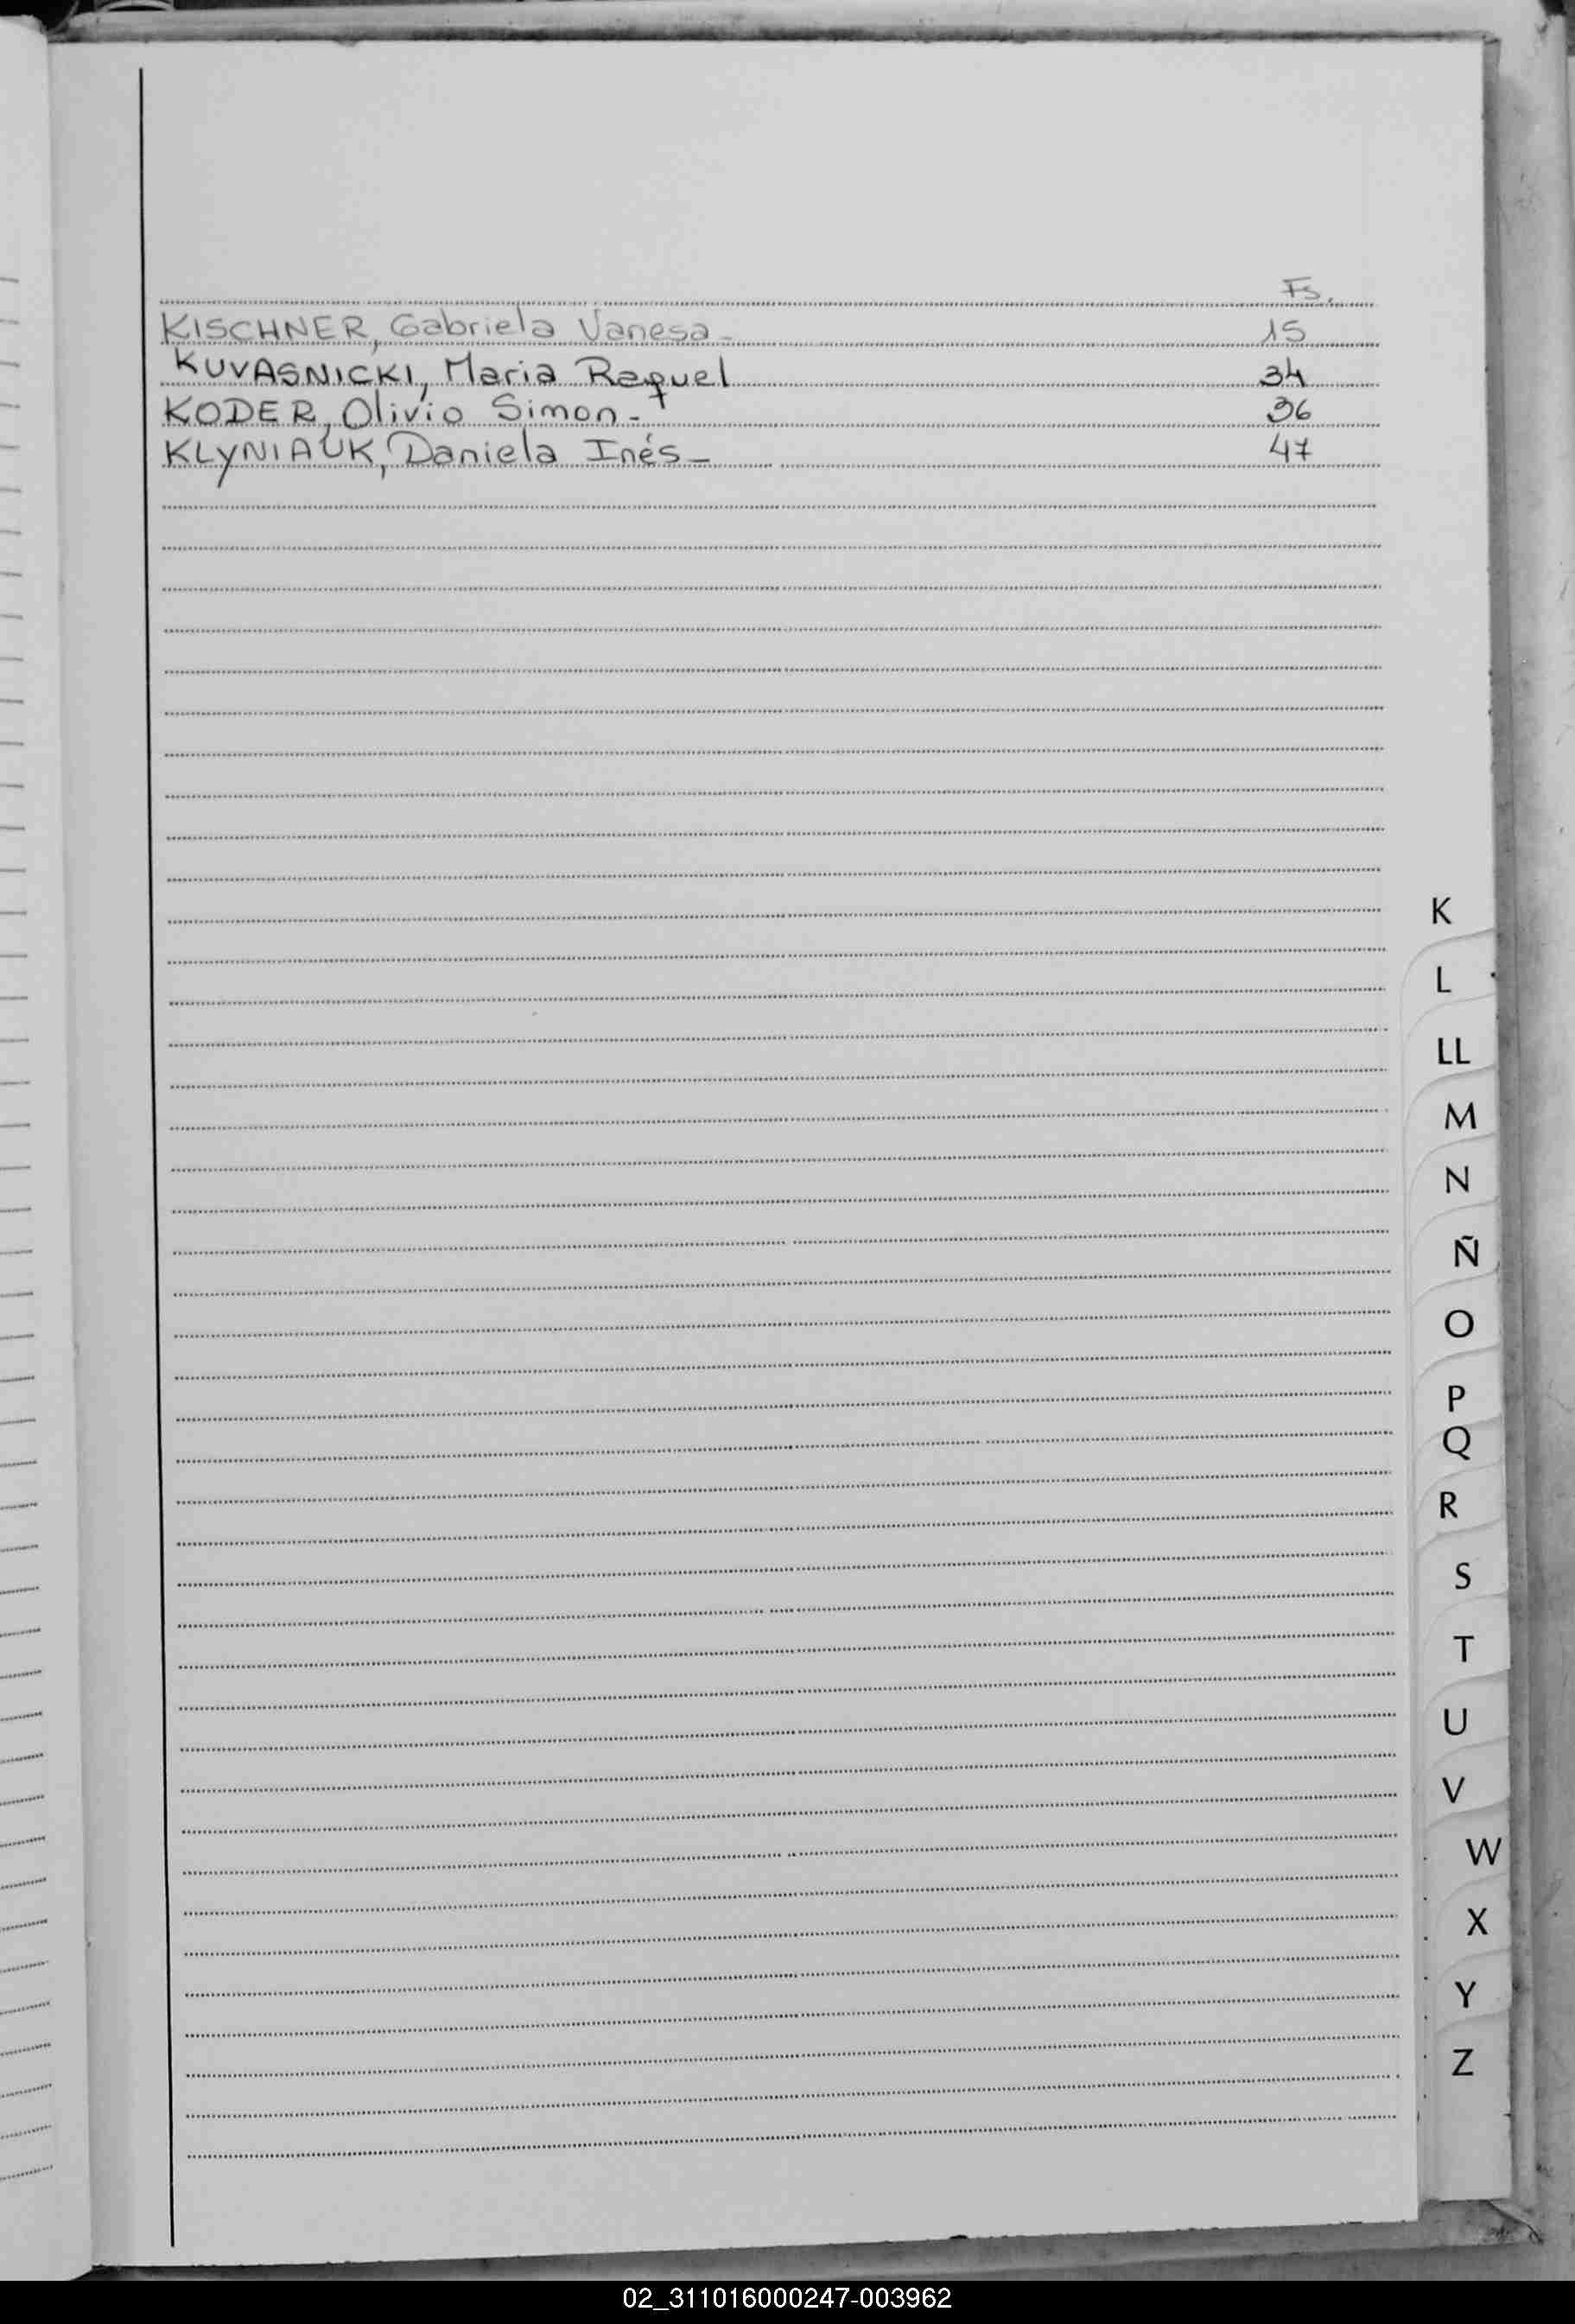 Fs.
KISCHNER, Gabriela Vanesa - 15
KUVASNICKI, Maria Raquel 34
KODER, Olivio Simon - 36
KLYNIAUK, Daniela Inés - 47
K
L
LL
M
N
Ñ
O
P
Q
R
S
T
U
V
W
X
Y
Z
02_311016000247-003962